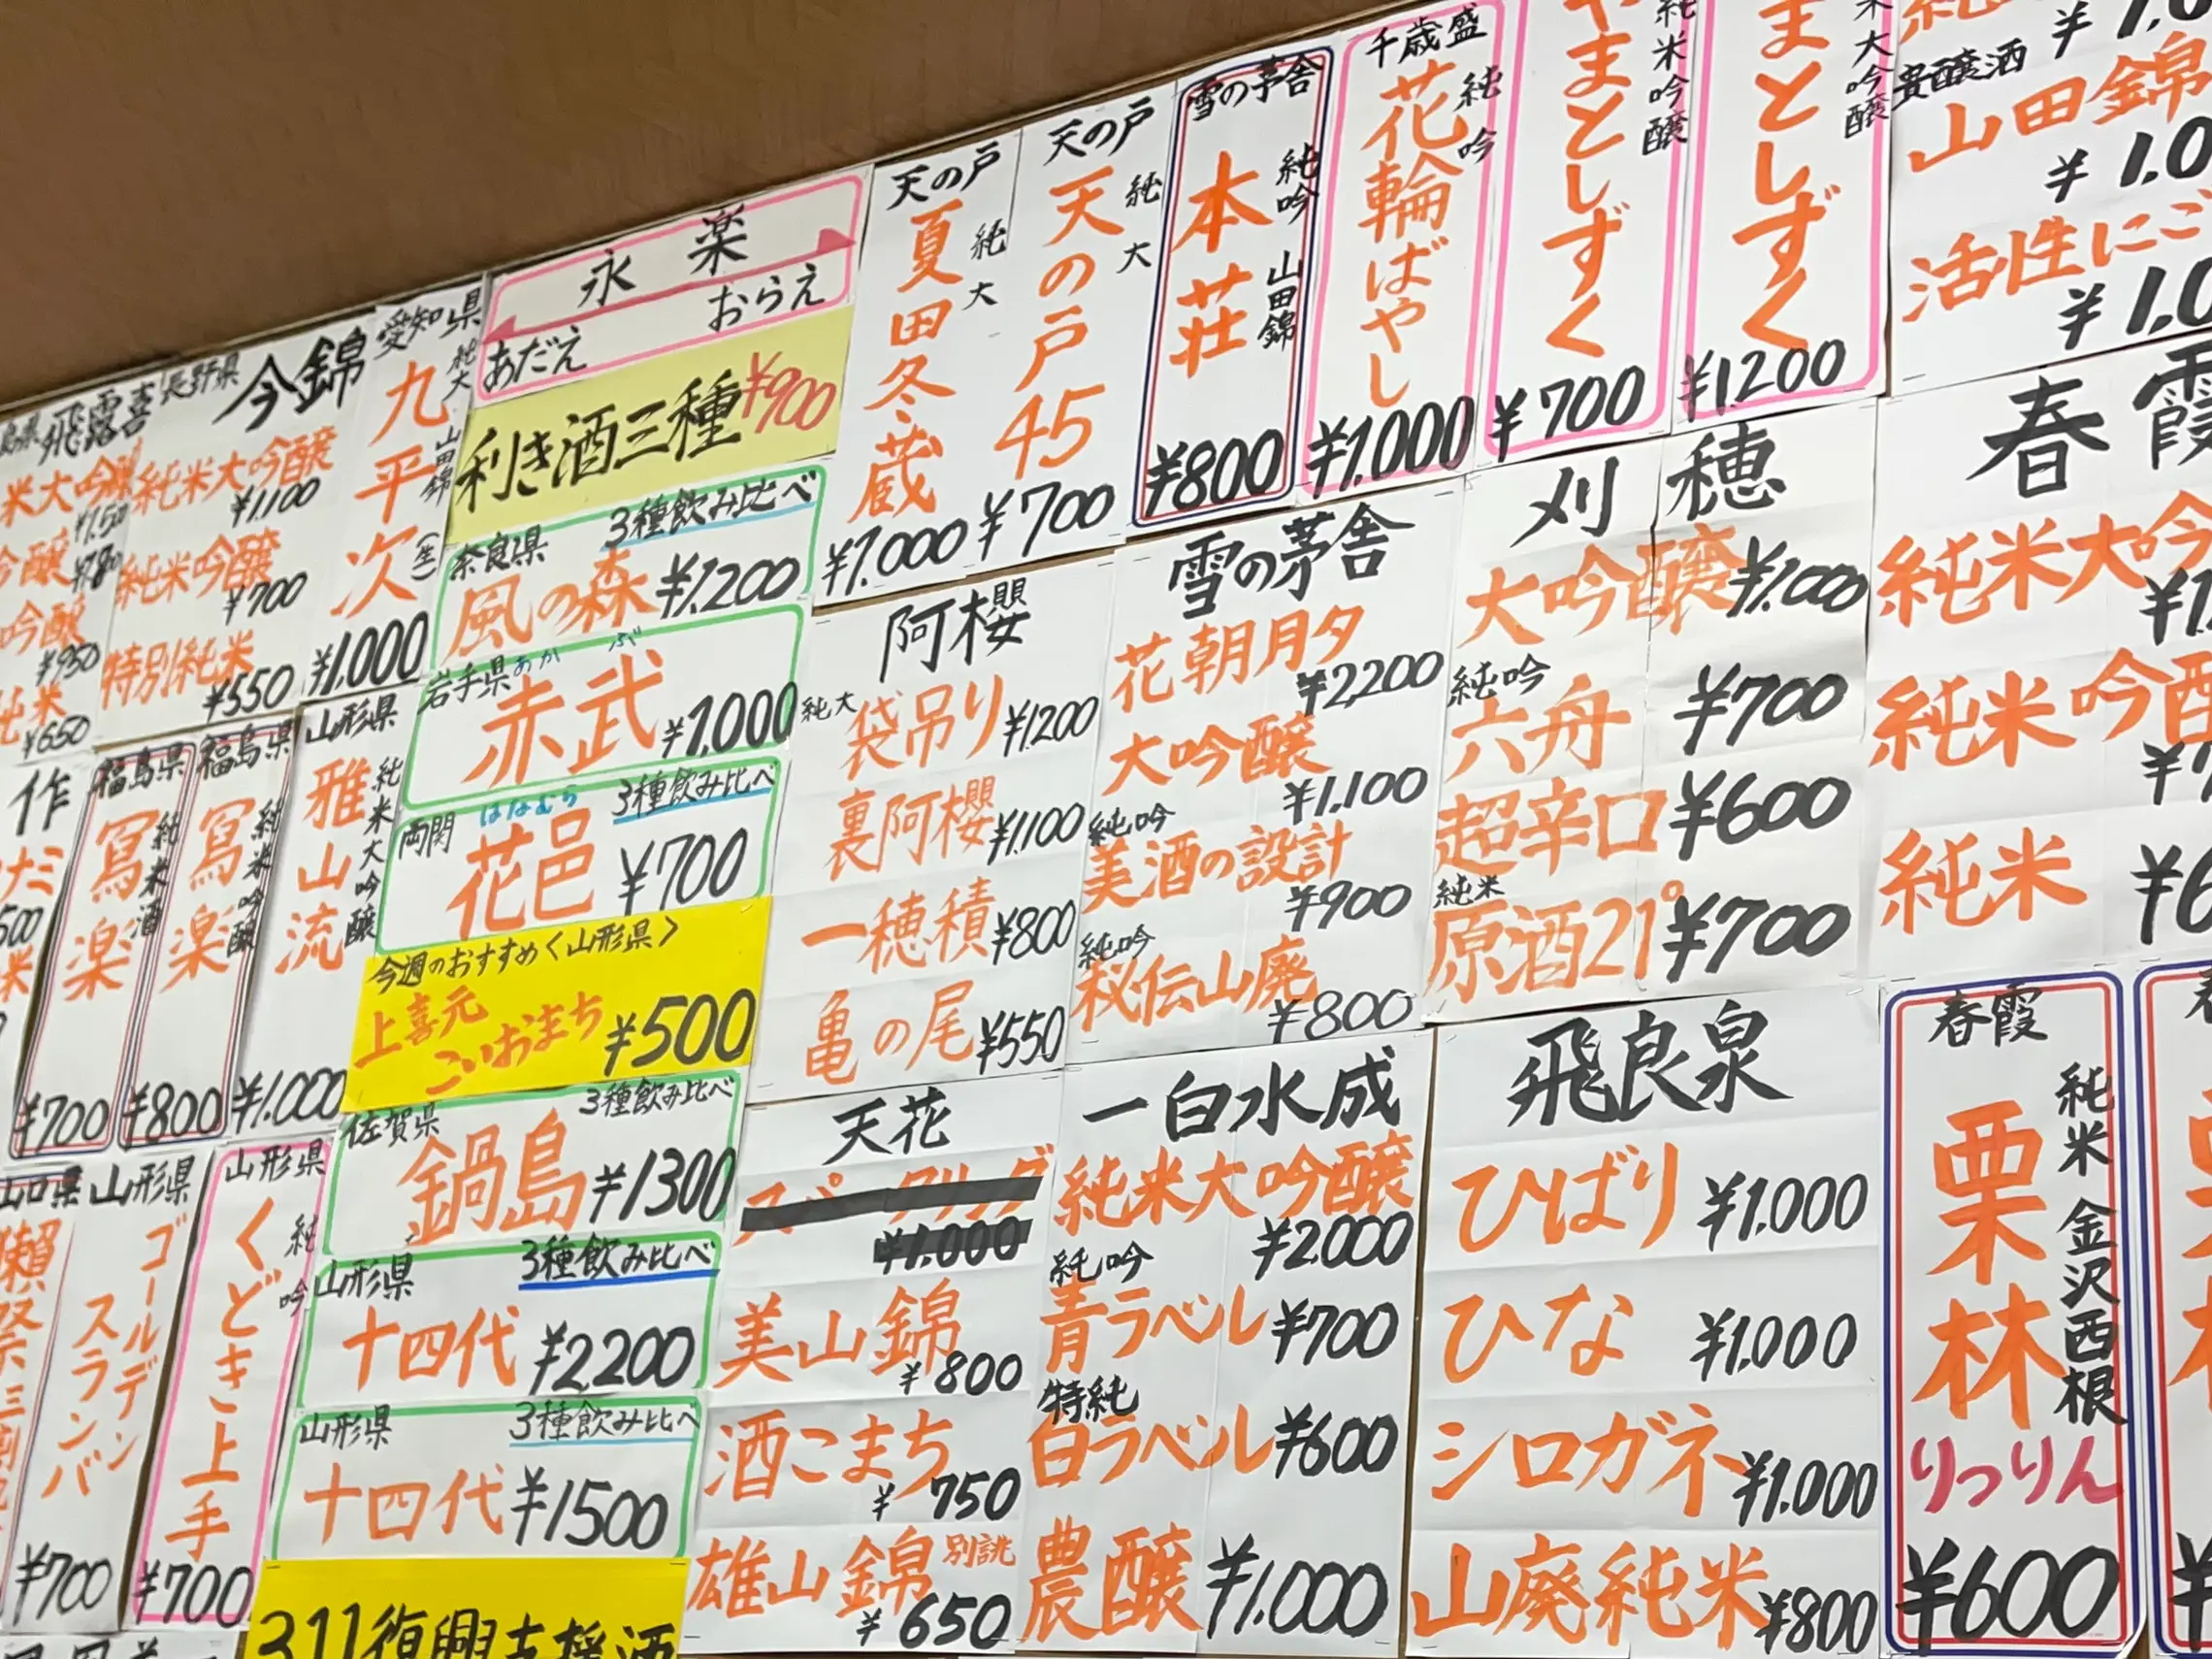 飛露喜
米大吟醸
¥1.50
吟醸
吟醸
¥950
純米
¥650
長野県
今錦
純米大吟醸
¥1,100
純米吟醸
¥700
特別純米
¥550
愛知県
九平次
純大 山田錦
(生)
¥1,000
永楽
おらえ
あだえ
利き酒三種 ¥900
奈良県 3種飲み比べ
風の森 ¥1,200
岩手県 あかぶ
赤武 ¥1,000
両関 はなむら 3種飲み比べ
花邑 ¥700
今週のおすすめ<山形県>
上喜元
こいおまち ¥500
佐賀県 3種飲み比べ
鍋島 ¥1300
山形県 3種飲み比べ
十四代 ¥2,200
山形県 3種飲み比べ
十四代 ¥1500
311復興支援酒
天の戸
夏田冬蔵
純大
¥1,000
天の戸
天の戸45
純大
¥700
雪の茅舎
本荘
純吟 山田錦
¥800
千歳盛
花輪ばやし
純吟
¥1,000
やまとしずく
純米吟醸
¥700
まとしずく
米大吟醸
¥1,200
貴醸酒
山田錦
¥1.0
活性にご
¥1.0
阿櫻
純大
袋吊り ¥1200
裏阿櫻 ¥1,100
一穂積 ¥800
亀の尾 ¥550
雪の茅舎
花朝月夕
¥2,200
大吟醸
¥1,100
純吟
美酒の設計
¥900
純吟
秘伝山廃
¥800
刈穂
大吟醸 ¥1,000
純吟
六舟 ¥700
超辛口 ¥600
純米
原酒21° ¥700
春霞
純米大吟
純米吟醸
純米 ¥6
作
福島県
冩楽
純米酒
¥700
福島県
冩楽
純米吟醸
¥800
山形県
雅山流
純米大吟醸
¥1,000
山口県
獺祭三割
山形県
ゴールデン
スランバ
¥700
山形県
くどき上手
純吟
¥700
天花
スパークリング
¥1,000
美山錦
¥800
酒こまち
¥750
雄山錦 別誂
¥650
一白水成
純米大吟醸
¥2,000
純吟
青ラベル ¥700
特純
白ラベル ¥600
農醸 ¥1,000
飛良泉
ひばり ¥1,000
ひな ¥1,000
シロガネ ¥1,000
山廃純米 ¥800
春霞
栗林
りっりん
純米 金沢西根
¥600